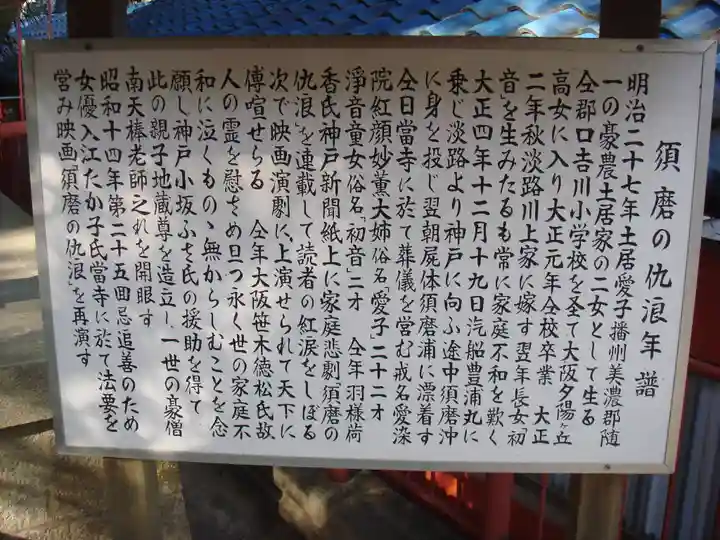 須磨の仇浪年譜
明治二十七年土居愛子播州美濃郡随
一の豪農土居家の二女として生る
仝郡口吉川小学校を圣て大阪夕陽ヶ丘
高女に入り大正元年仝校卒業　大正
二年秋淡路川上家に嫁す翌年長女初
音を生みたるも常に家庭不和を歎く
大正四年十二月十九日汽船豊浦丸に
乗じ淡路より神戸に向ふ途中須磨沖
に身を投じ翌朝屍体須磨浦に漂着す
仝日當寺に於て葬儀を営む戒名愛染
院紅顔妙薫大姉俗名「愛子」二十二才
淨音童女俗名「初音」二才　仝年羽様荷
香氏神戸新聞紙上に家庭悲劇「須磨の
仇浪」を連載して読者の紅涙をしぼる
次で映画演劇に上演せられて天下に
傳喧せらる　仝年大阪笹木徳松氏故
人の霊を慰さめ旦つ永く世の家庭不
和に泣くものゝ無からしむことを念
願し神戸小坂ふさ氏の援助を得て
此の親子地蔵尊を造立し一世の豪僧
南天棒老師之れを開眼す
昭和十四年第二十五回忌追善のため
女優入江たか子氏當寺に於て法要を
営み映画「須磨の仇浪」を再演す